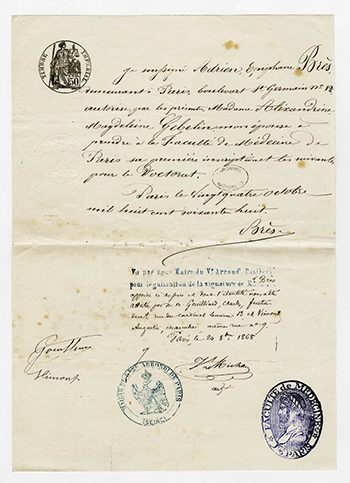 TIMBRE IMPÉRIAL
50
Je soussigné Adrien Epiphane Brès,
demeurant à Paris, boulevart St Germain No 12
autorise par les présentes Madame Alexandrine
Magdeleine Gebelin mon épouse à
prendre à la Faculté de Médecine de
Paris sa première inscription et les suivantes
pour le Doctorat.
Paris le vingt quatre octobre
mil huit cent soixante huit.
Brès
Vu par nous Maire du Ve Arrondt
pour légalisation de la signature de M. Brès
Charles
rue du Cardinal Lemoine et Vimont
Auguste même rue no 9
Paris, le 24 8bre 1868
Vimont
MAIRIE DU 5E ARRONDT DE PARIS
(SEINE)
FACULTÉ DE MÉDECINE PARIS